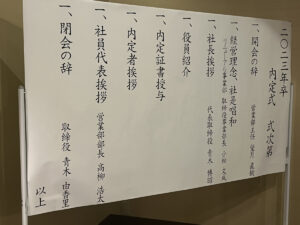 二〇二三年卒
内定式 式次第
一、開会の辞
営業部主任
一、経営理念、社是唱和
取締役事業部長 小田
一、社長挨拶
代表取締役 青木 博昭
一、役員紹介
一、内定証書授与
一、内定者挨拶
一、社員代表挨拶
営業部部長 高柳 浩太
一、閉会の辞
取締役 青木 由香里
以上